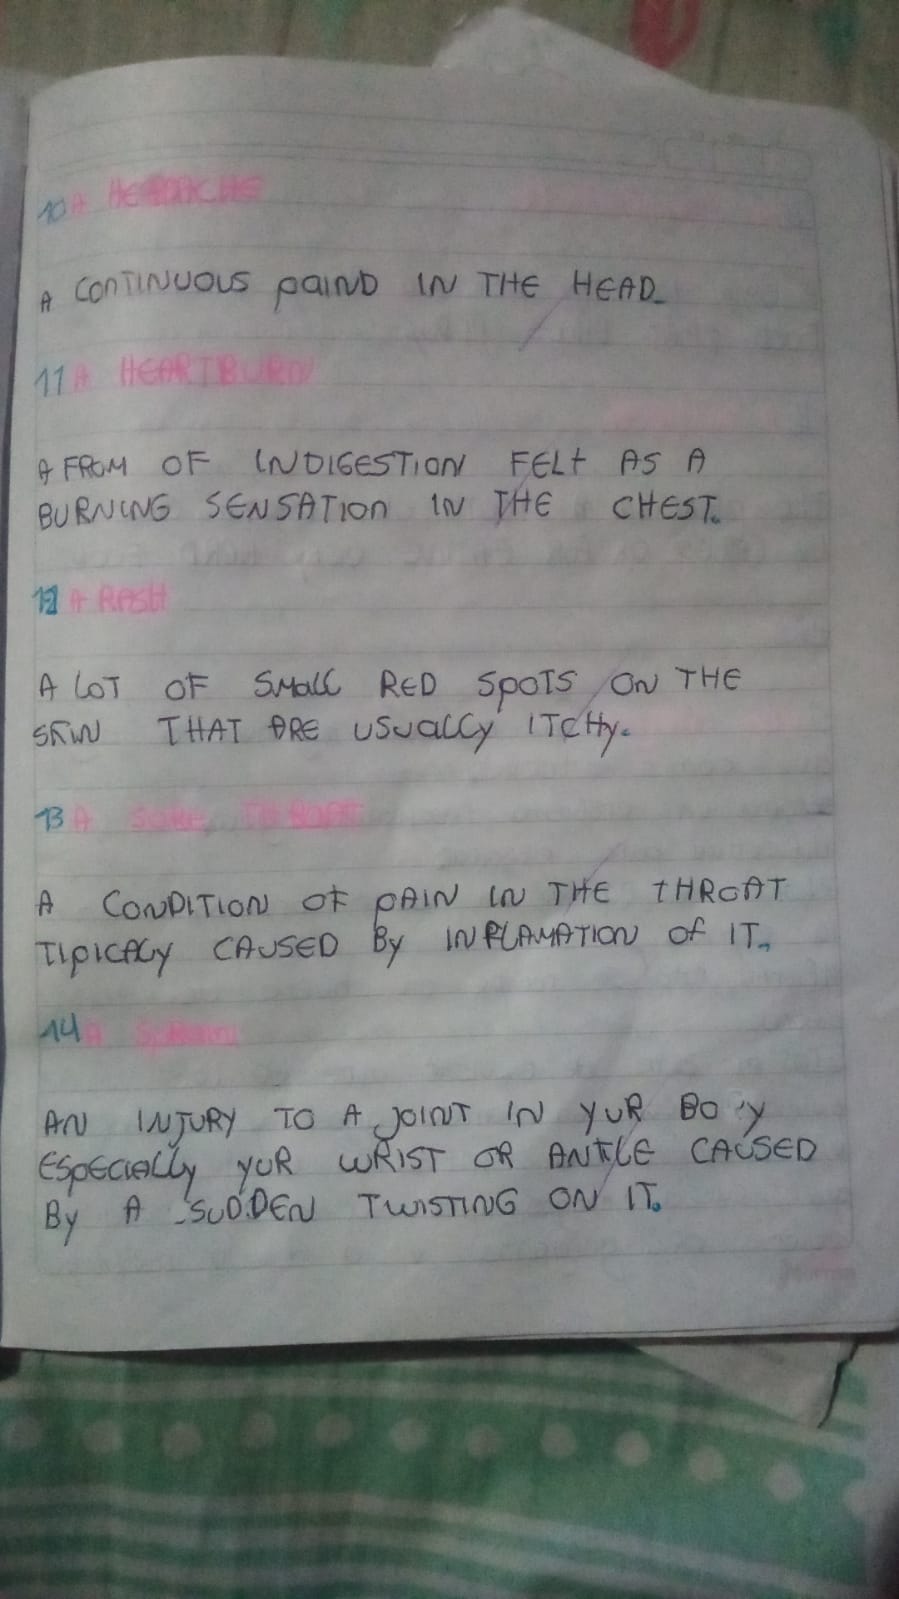 10 A HEADACHE
A CONTINUOUS PAIND IN THE HEAD
11 A HEARTBURN
A FROM OF INDIGESTION FELT AS A
BURNING SENSATION IN THE CHEST.
12 A RASH
A LOT OF SMALL RED SPOTS ON THE
SKIN THAT ARE USUALLY ITCHY.
13 A SORE THROAT
A CONDITION OF PAIN IN THE THROAT
TIPICALY CAUSED BY INFLAMATION OF IT.
14 A SPRAIN
AN INJURY TO A JOINT IN YUR BODY
ESPECIALLY YUR WRIST OR ANKLE CAUSED
BY A SUDDEN TWISTING ON IT.